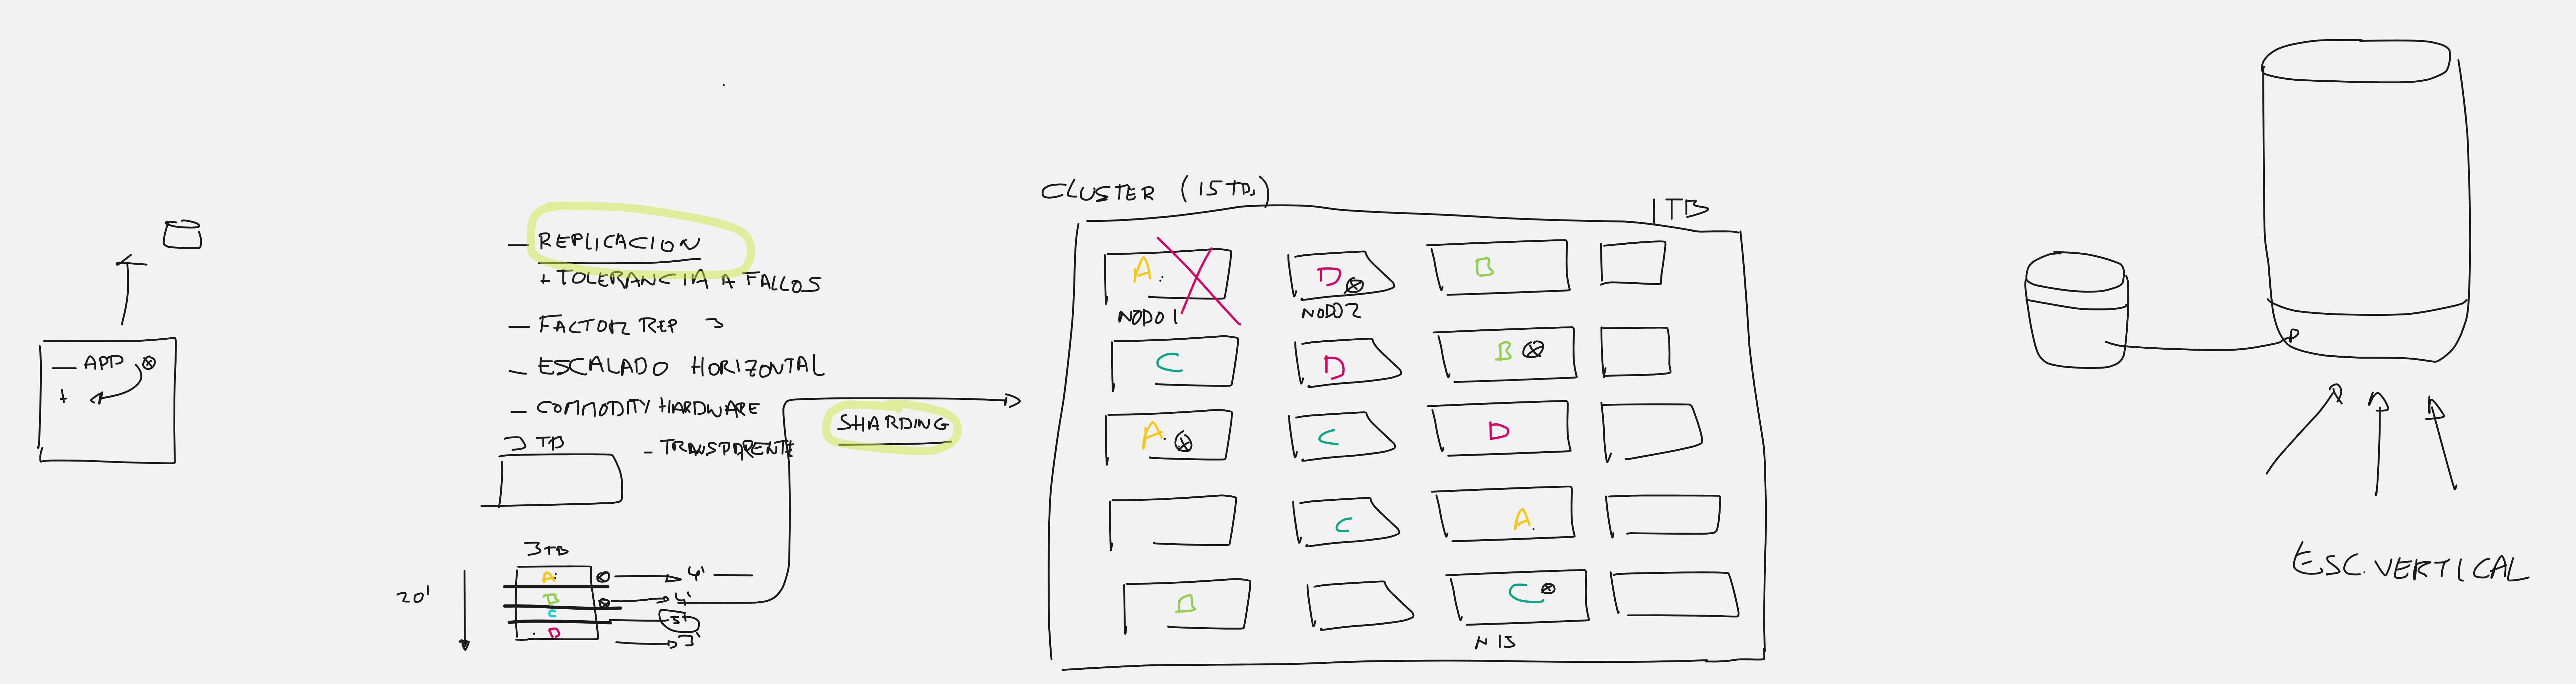 — APP ⊗
+
— REPLICACION
+ TOLERANCIA A FALLOS
— FACTOR REP 3
— ESCALADO HORIZONTAL
— COMMODITY HARDWARE
3 TB
- TRANSPARENTE
SHARDING
3TB
20'
A
B
C
D
4'
4'
5'
3'
CLUSTER (15 TB)
1 TB
A D B
NODO 1 NODO 2
C D B
A C D
C A
B C
N 15
ESC. VERTICAL